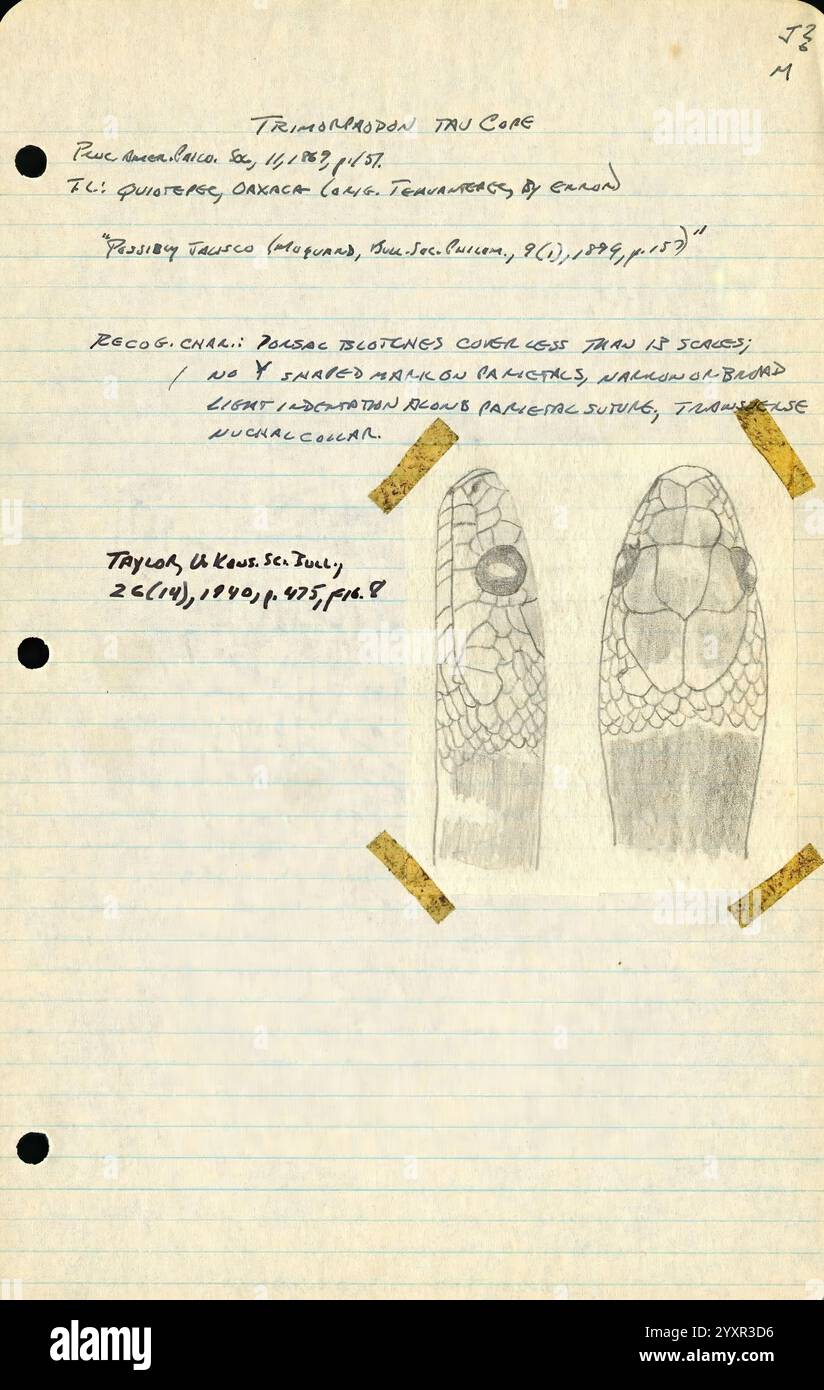 J 2
6
M
TRIMORPHODON TAU COPE
PROC. AMER. PHILO. SOC, 11, 1869, p.151.
T.L.: QUIOTEPEC, OAXACA (ORIG. TEHUANTEPEC, BY ERROR)
"POSSIBLY JALISCO (MOQUARD, BULL. SOC. PHILOM., 9(1), 1899, p.157)"
RECOG. CHAR.: DORSAL BLOTCHES COVER LESS THAN 13 SCALES;
NO Y SHAPED MARK ON PARIETALS, NARROW OR BROAD
LIGHT INDENTATION ALONG PARIETAL SUTURE; TRANSVERSE
NUCHAL COLLAR.
TAYLOR, U. KANS. SC. BULL.,
26(14), 1940, p.475, FIG. 8
alamy
Image ID: 2YXR3D6
www.alamy.com